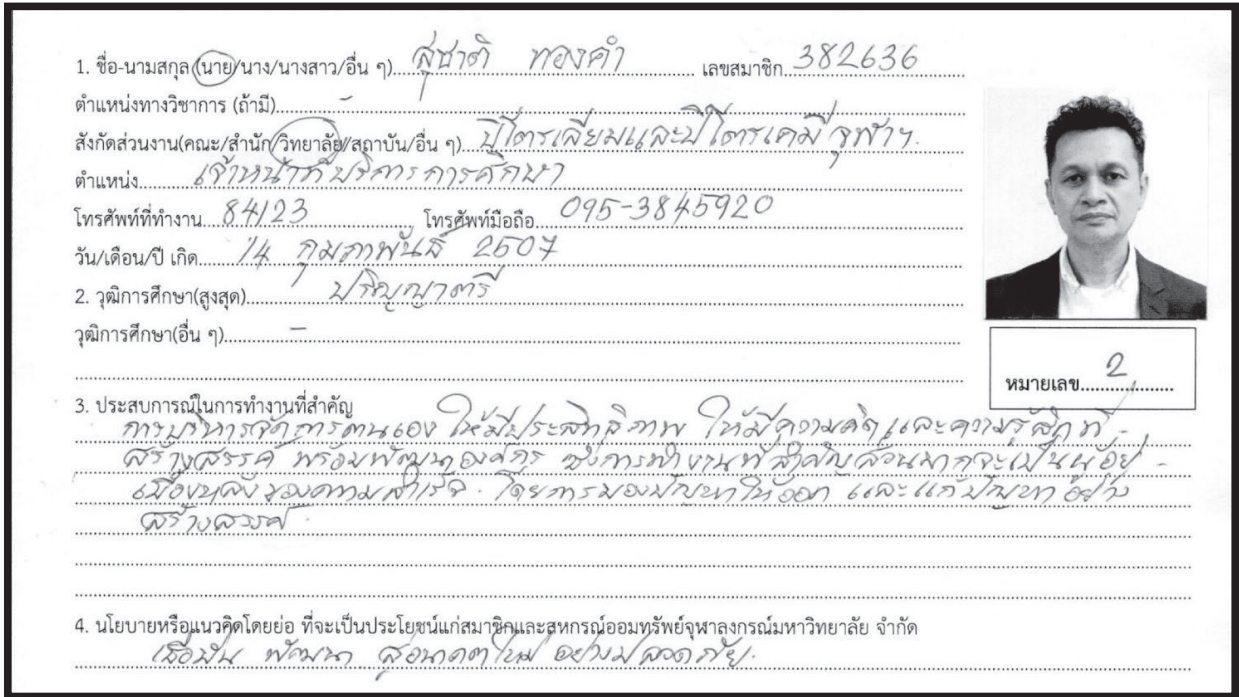 1. ชื่อ-นามสกุล (นาย/นาง/นางสาว/อื่น ๆ)....สุชาติ ทองคำ.... เลขสมาชิก..382636
ตำแหน่งทางวิชาการ (ถ้ามี)....-....
สังกัดส่วนงาน(คณะ/สำนัก/วิทยาลัย/สถาบัน/อื่น ๆ)....ปิโตรเลียมและปิโตรเคมี จุฬาฯ.
ตำแหน่ง....เจ้าหน้าที่บริการการศึกษา
โทรศัพท์ที่ทำงาน....84123.... โทรศัพท์มือถือ....095-3845920
วัน/เดือน/ปี เกิด....14 กุมภาพันธ์ 2507
2. วุฒิการศึกษา(สูงสุด)....ปริญญาตรี
วุฒิการศึกษา(อื่น ๆ)....-
หมายเลข....2....
3. ประสบการณ์ในการทำงานที่สำคัญ
การบริหารจัดการตนเอง ให้มีประสิทธิภาพ ให้มีความคิดและความรู้สึกที่
สร้างสรรค์ พร้อมพัฒนาองค์กร ซึ่งการทำงานที่สำคัญส่วนมากจะเป็นผู้อยู่
เบื้องหลังของความสำเร็จ. โดยการมองปัญหาให้ออก และแก้ปัญหาอย่าง
สร้างสรรค์.
4. นโยบายหรือแนวคิดโดยย่อ ที่จะเป็นประโยชน์แก่สมาชิกและสหกรณ์ออมทรัพย์จุฬาลงกรณ์มหาวิทยาลัย จำกัด
เชื่อมั่น พัฒนา สู่อนาคตใหม่ อย่างปลอดภัย.